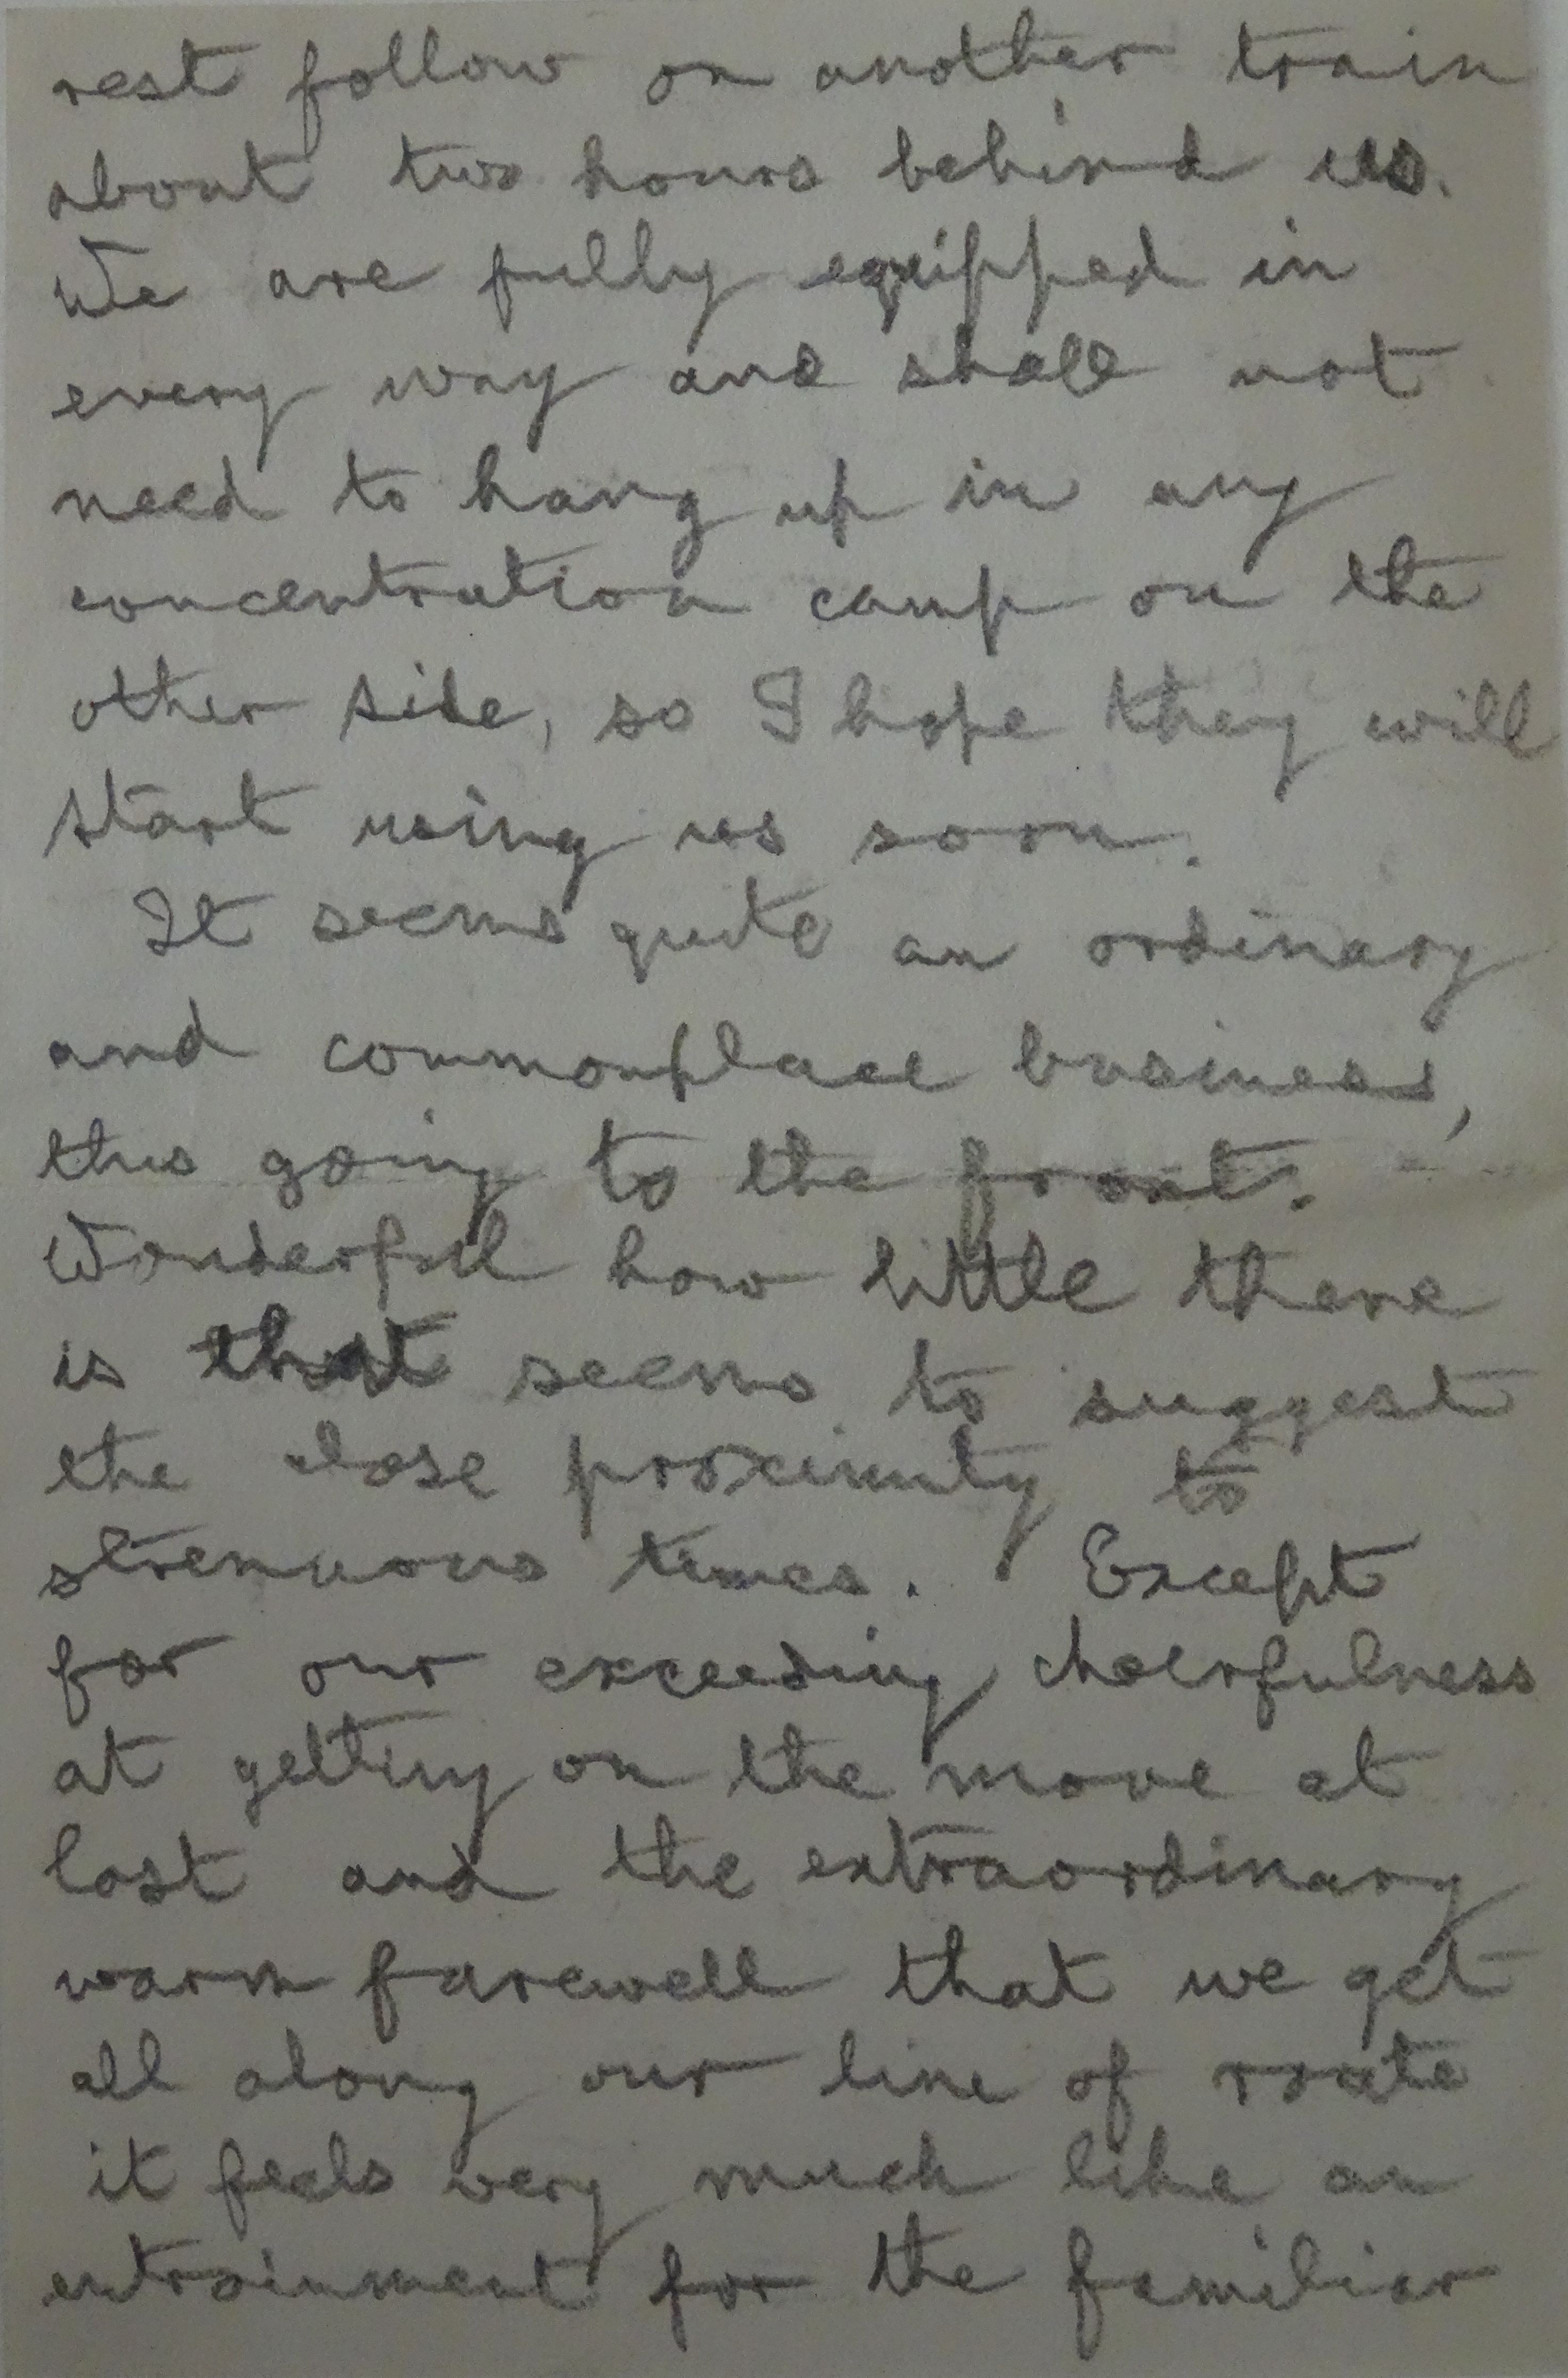 rest follow on another train
about two hours behind us.
We are fully equipped in
every way and shall not
need to hang up in any
concentration camp on the
other side, so I hope they will
start using us soon.
It seems quite an ordinary
and commonplace business,
this going to the front.
Wonderful how little there
is that seems to suggest
the close proximity to
strenuous times. Except
for our exceeding cheerfulness
at getting on the move at
last and the extraordinary
warm farewell that we get
all along our line of route
it feels very much like an
entrainment for the familiar